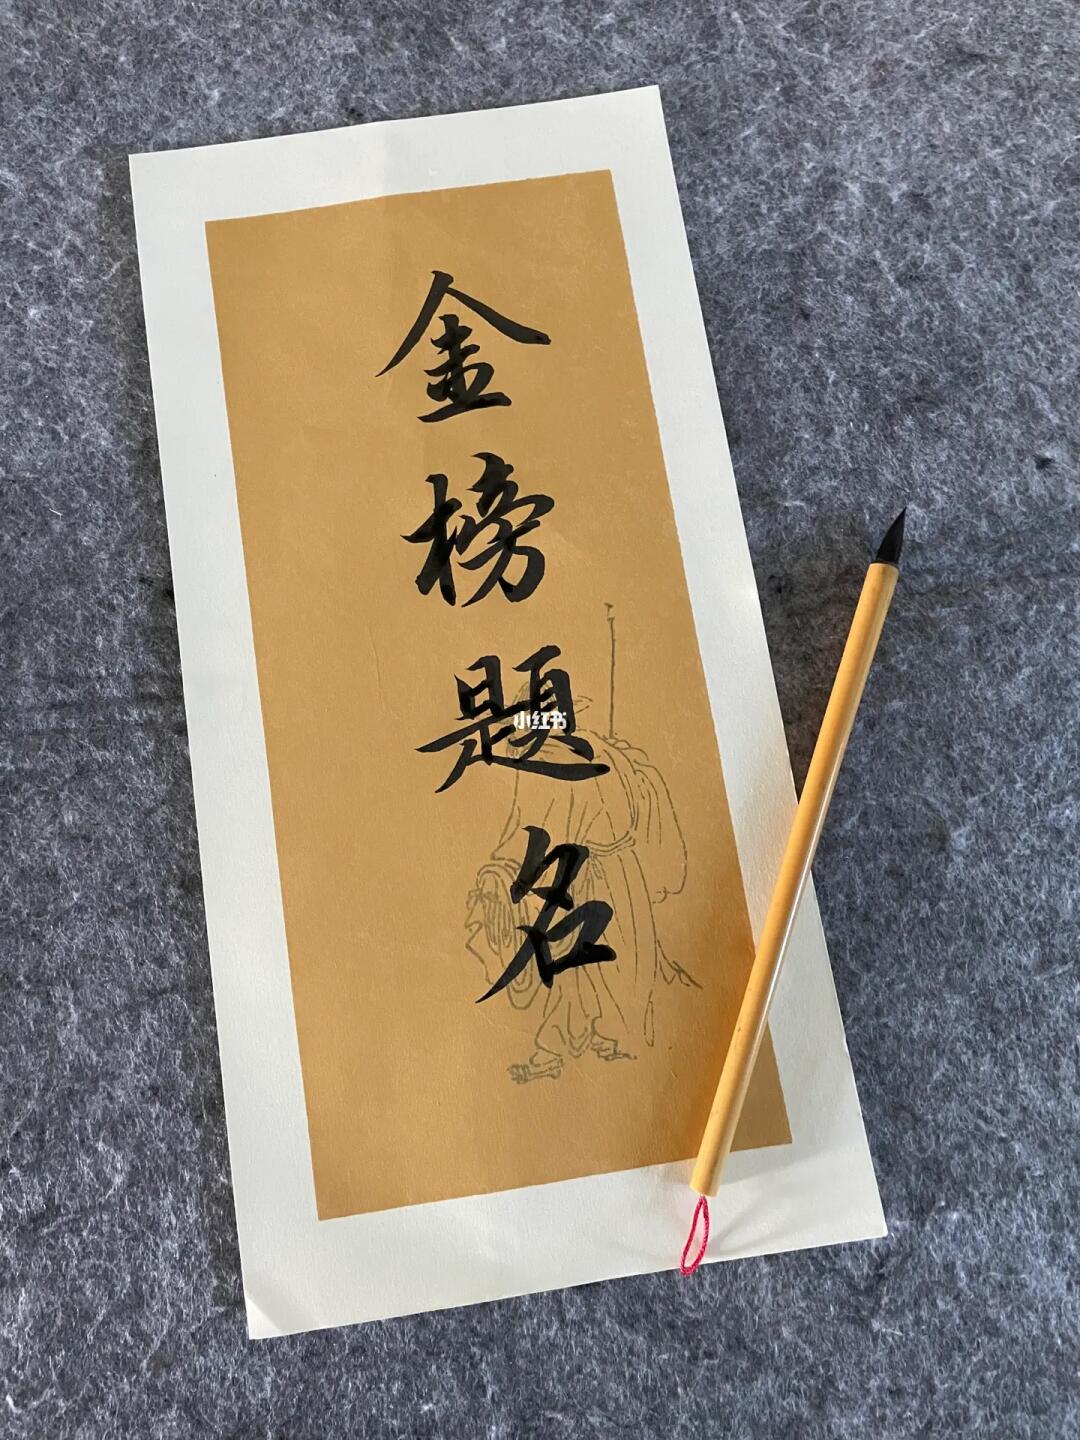 金榜題名
小红书